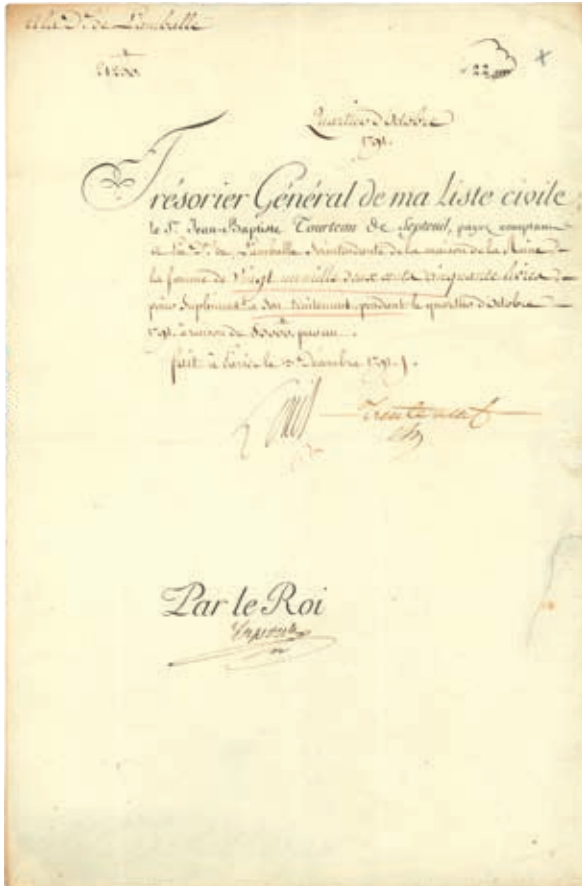 a la D.e de Lamballe
21250.tt
22
Quartier d'Octobre
1791.
Trésorier Général de ma Liste civile
le S.r Jean-Baptiste Tourteau de Septeuil, payez comptant
a la D.e de Lamballe Surintendante de la maison de la Reine
la somme de Vingt un mille deux cents cinquante livres
pour Suplément à son traitement, pendant le quartier d'octobre
1791. à raison de paran.
fait à Paris le Décembre 1791.
Louis
Par le Roi
Laporte